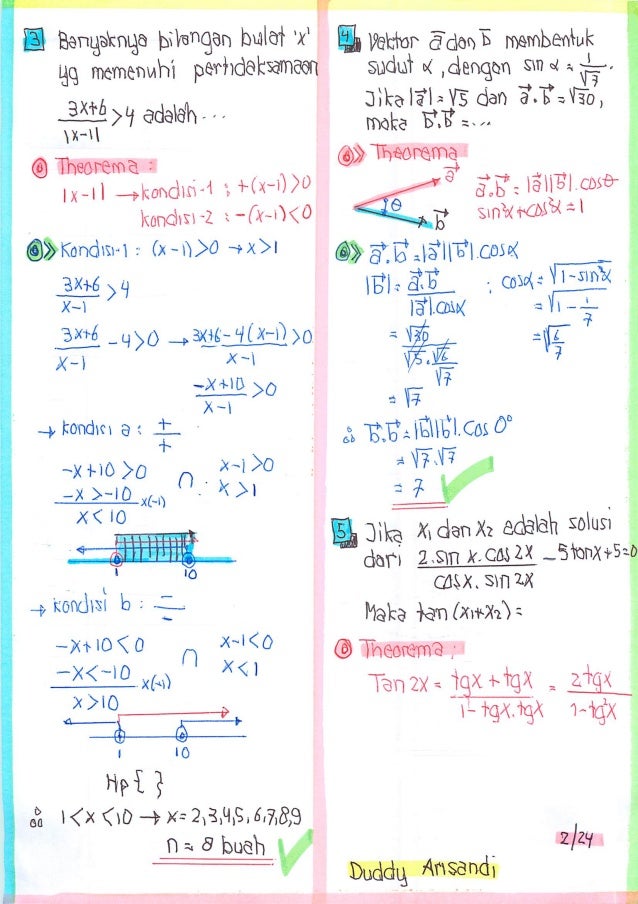 3 Banyaknya bilangan bulat 'x'
yg memenuhi pertidaksamaan
3x+6/|x-1| > 4 adalah ...
Theorema :
|x-1| → kondisi-1 : +(x-1)>0
kondisi-2 : -(x-1)<0
Kondisi-1 : (x-1)>0 → x>1
3x+6/x-1 > 4
3x+6/x-1 - 4>0 → 3x+6-4(x-1)/x-1 >0
-x+10/x-1 >0
→ kondisi a : +/+
-x+10>0 ∩ x-1>0
-x>-10 x(-1) x>1
x<10
1 10
→ kondisi b : -/-
-x+10<0 ∩ x-1<0
-x<-10 x(-1) x<1
x>10
1 10
Hp { }
∴ 1<x<10 → x=2,3,4,5,6,7,8,9
n = 8 buah
4 Vektor a⃗ dan b⃗ membentuk
sudut α, dengan sin α = 1/√7.
Jika |a⃗| = √5 dan a⃗.b⃗ = √30,
maka b⃗.b⃗ = ...
Theorema
a⃗
θ
b⃗
a⃗.b⃗ = |a⃗||b⃗|.cosθ
sin²x+cos²x=1
a⃗.b⃗ = |a⃗||b⃗|.cosα
|b⃗| = a⃗.b⃗/|a⃗|.cosα ; cosα = √1-sin²α
= √30/√5.√6/√7 = √1-1/7
= √7 = √6/7
∴ b⃗.b⃗ = |b⃗||b⃗|.cos 0°
= √7.√7
= 7
5 Jika x₁ dan x₂ adalah solusi
dari 2.sin x.cos 2x/cosx.sin 2x - 5tanx+5=0
Maka tan (x₁+x₂) =
Theorema :
Tan 2x = tgx + tgx/1-tgx.tgx = 2tgx/1-tg²x
2/24
Duddy Arisandi